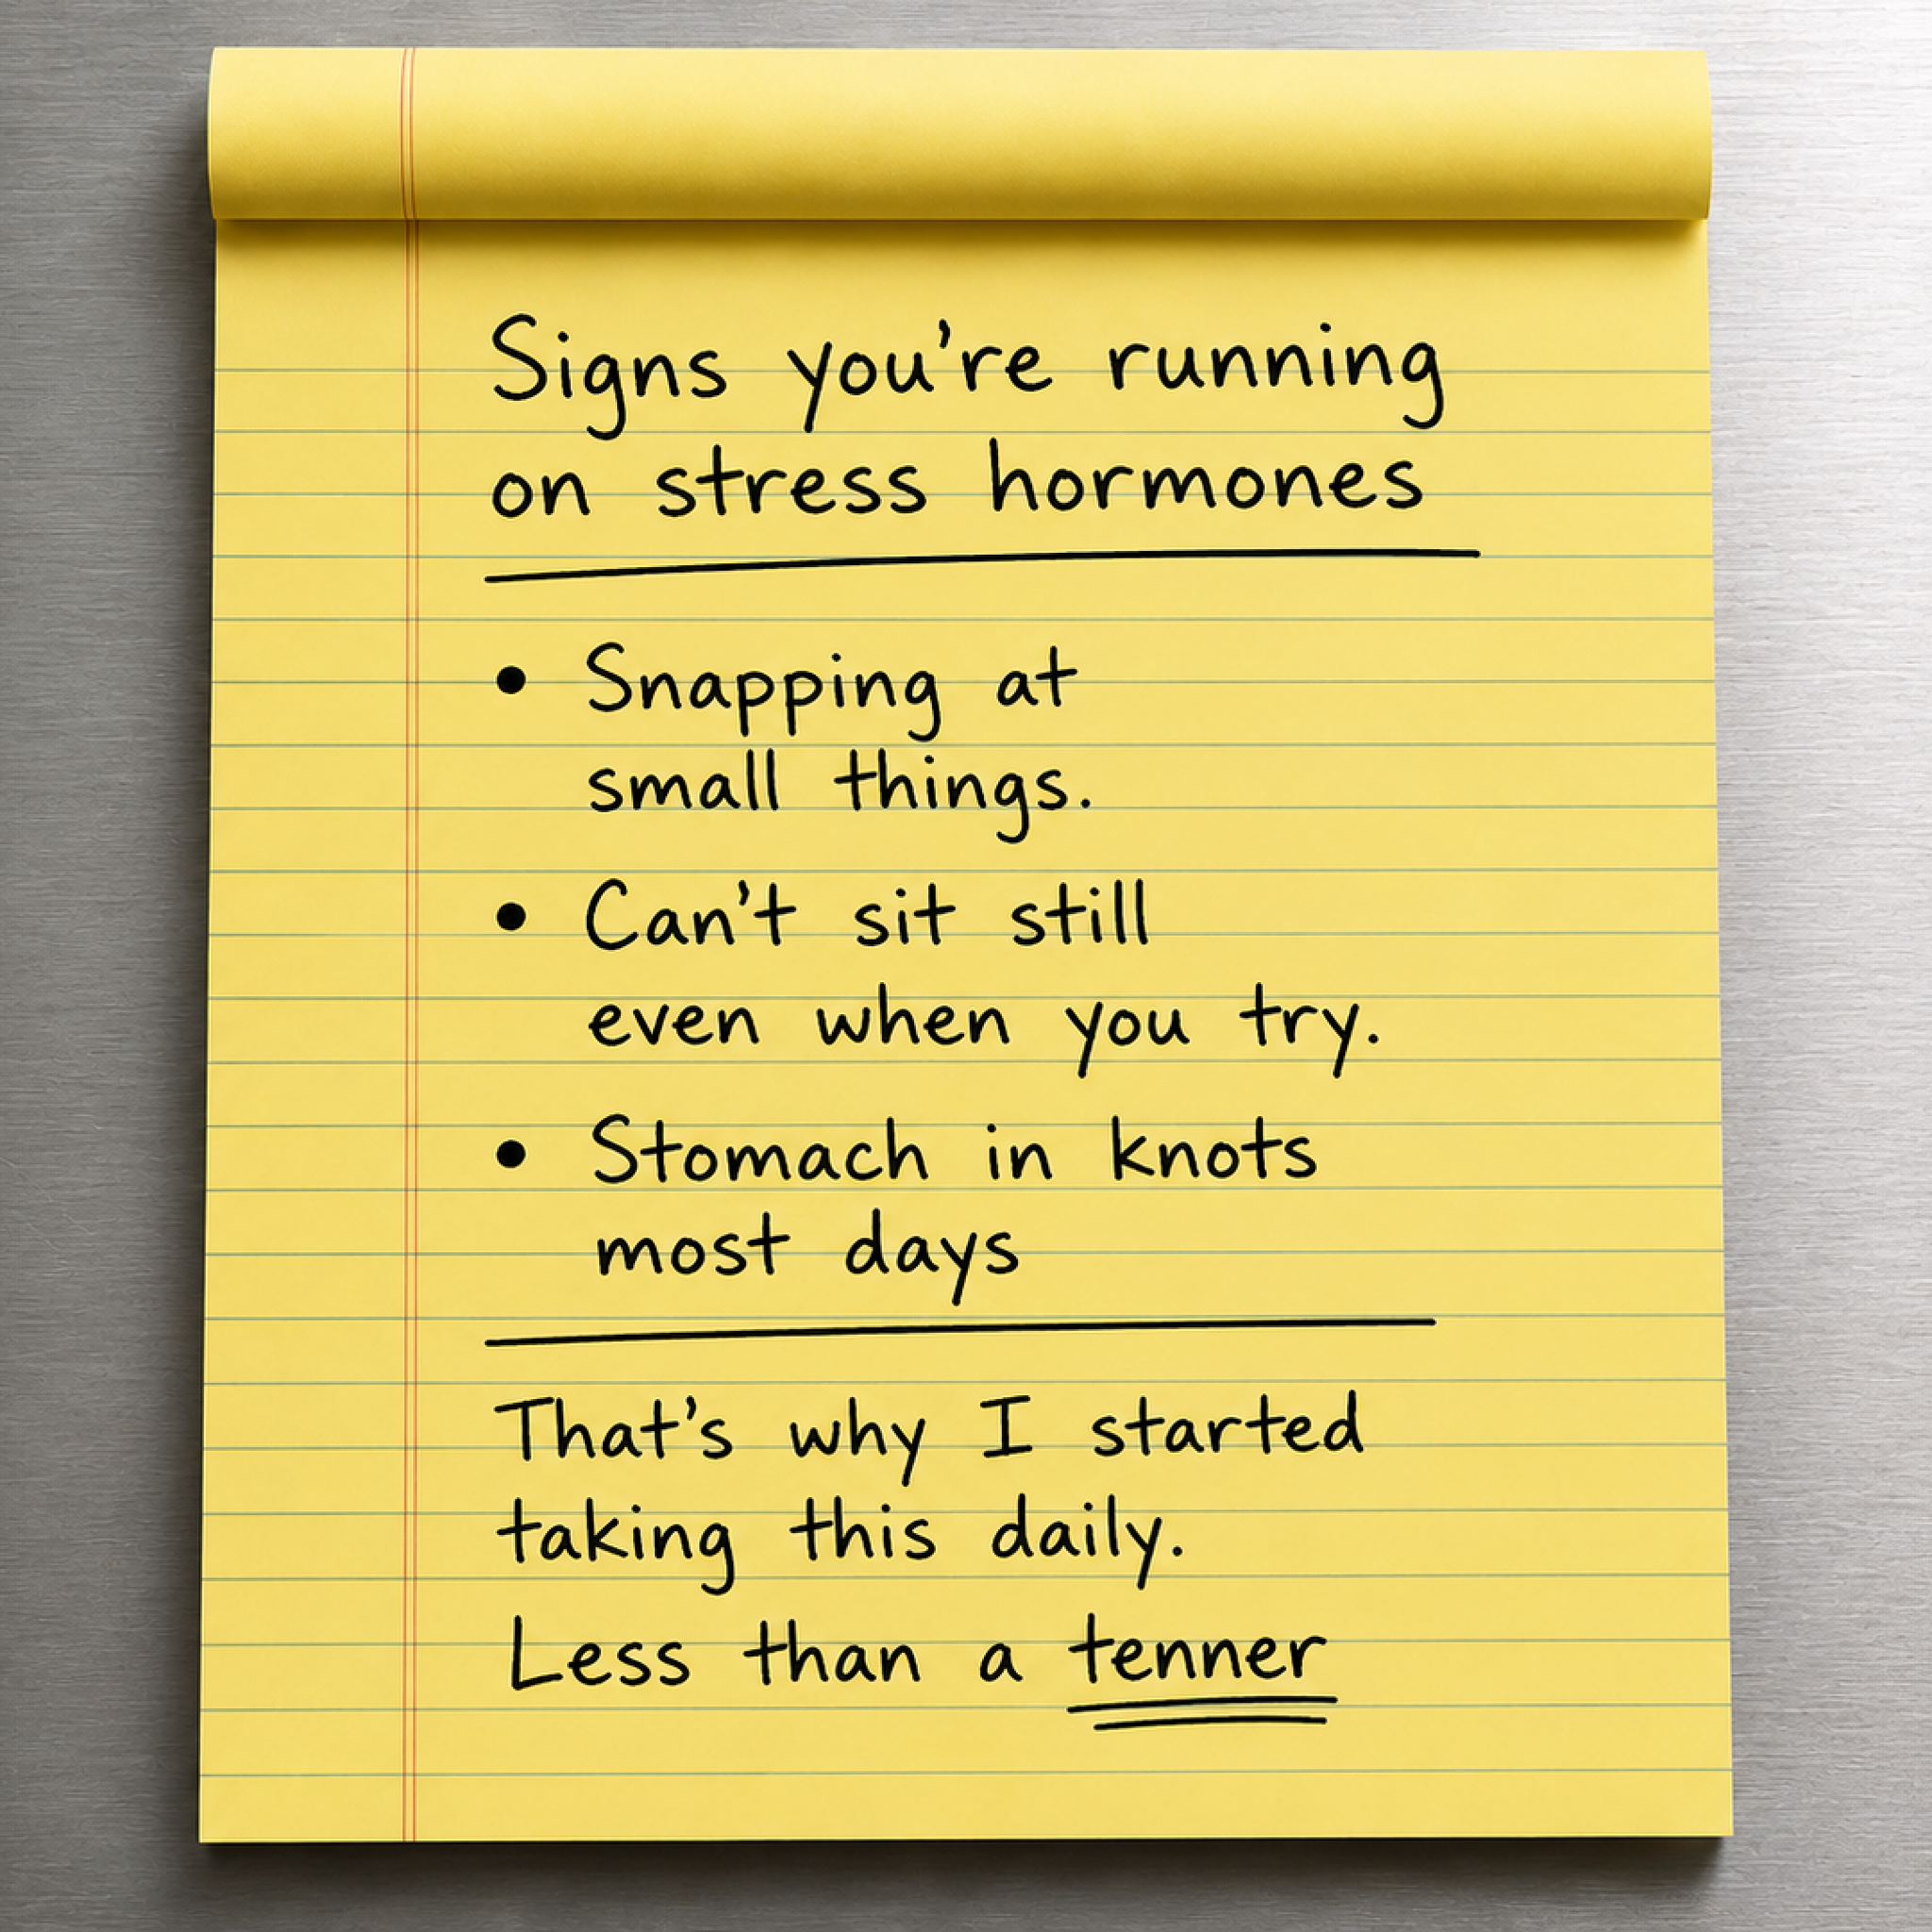 Signs you're running
on stress hormones
• Snapping at
small things.
• Can't sit still
even when you try.
• Stomach in knots
most days
That's why I started
taking this daily.
Less than a tenner